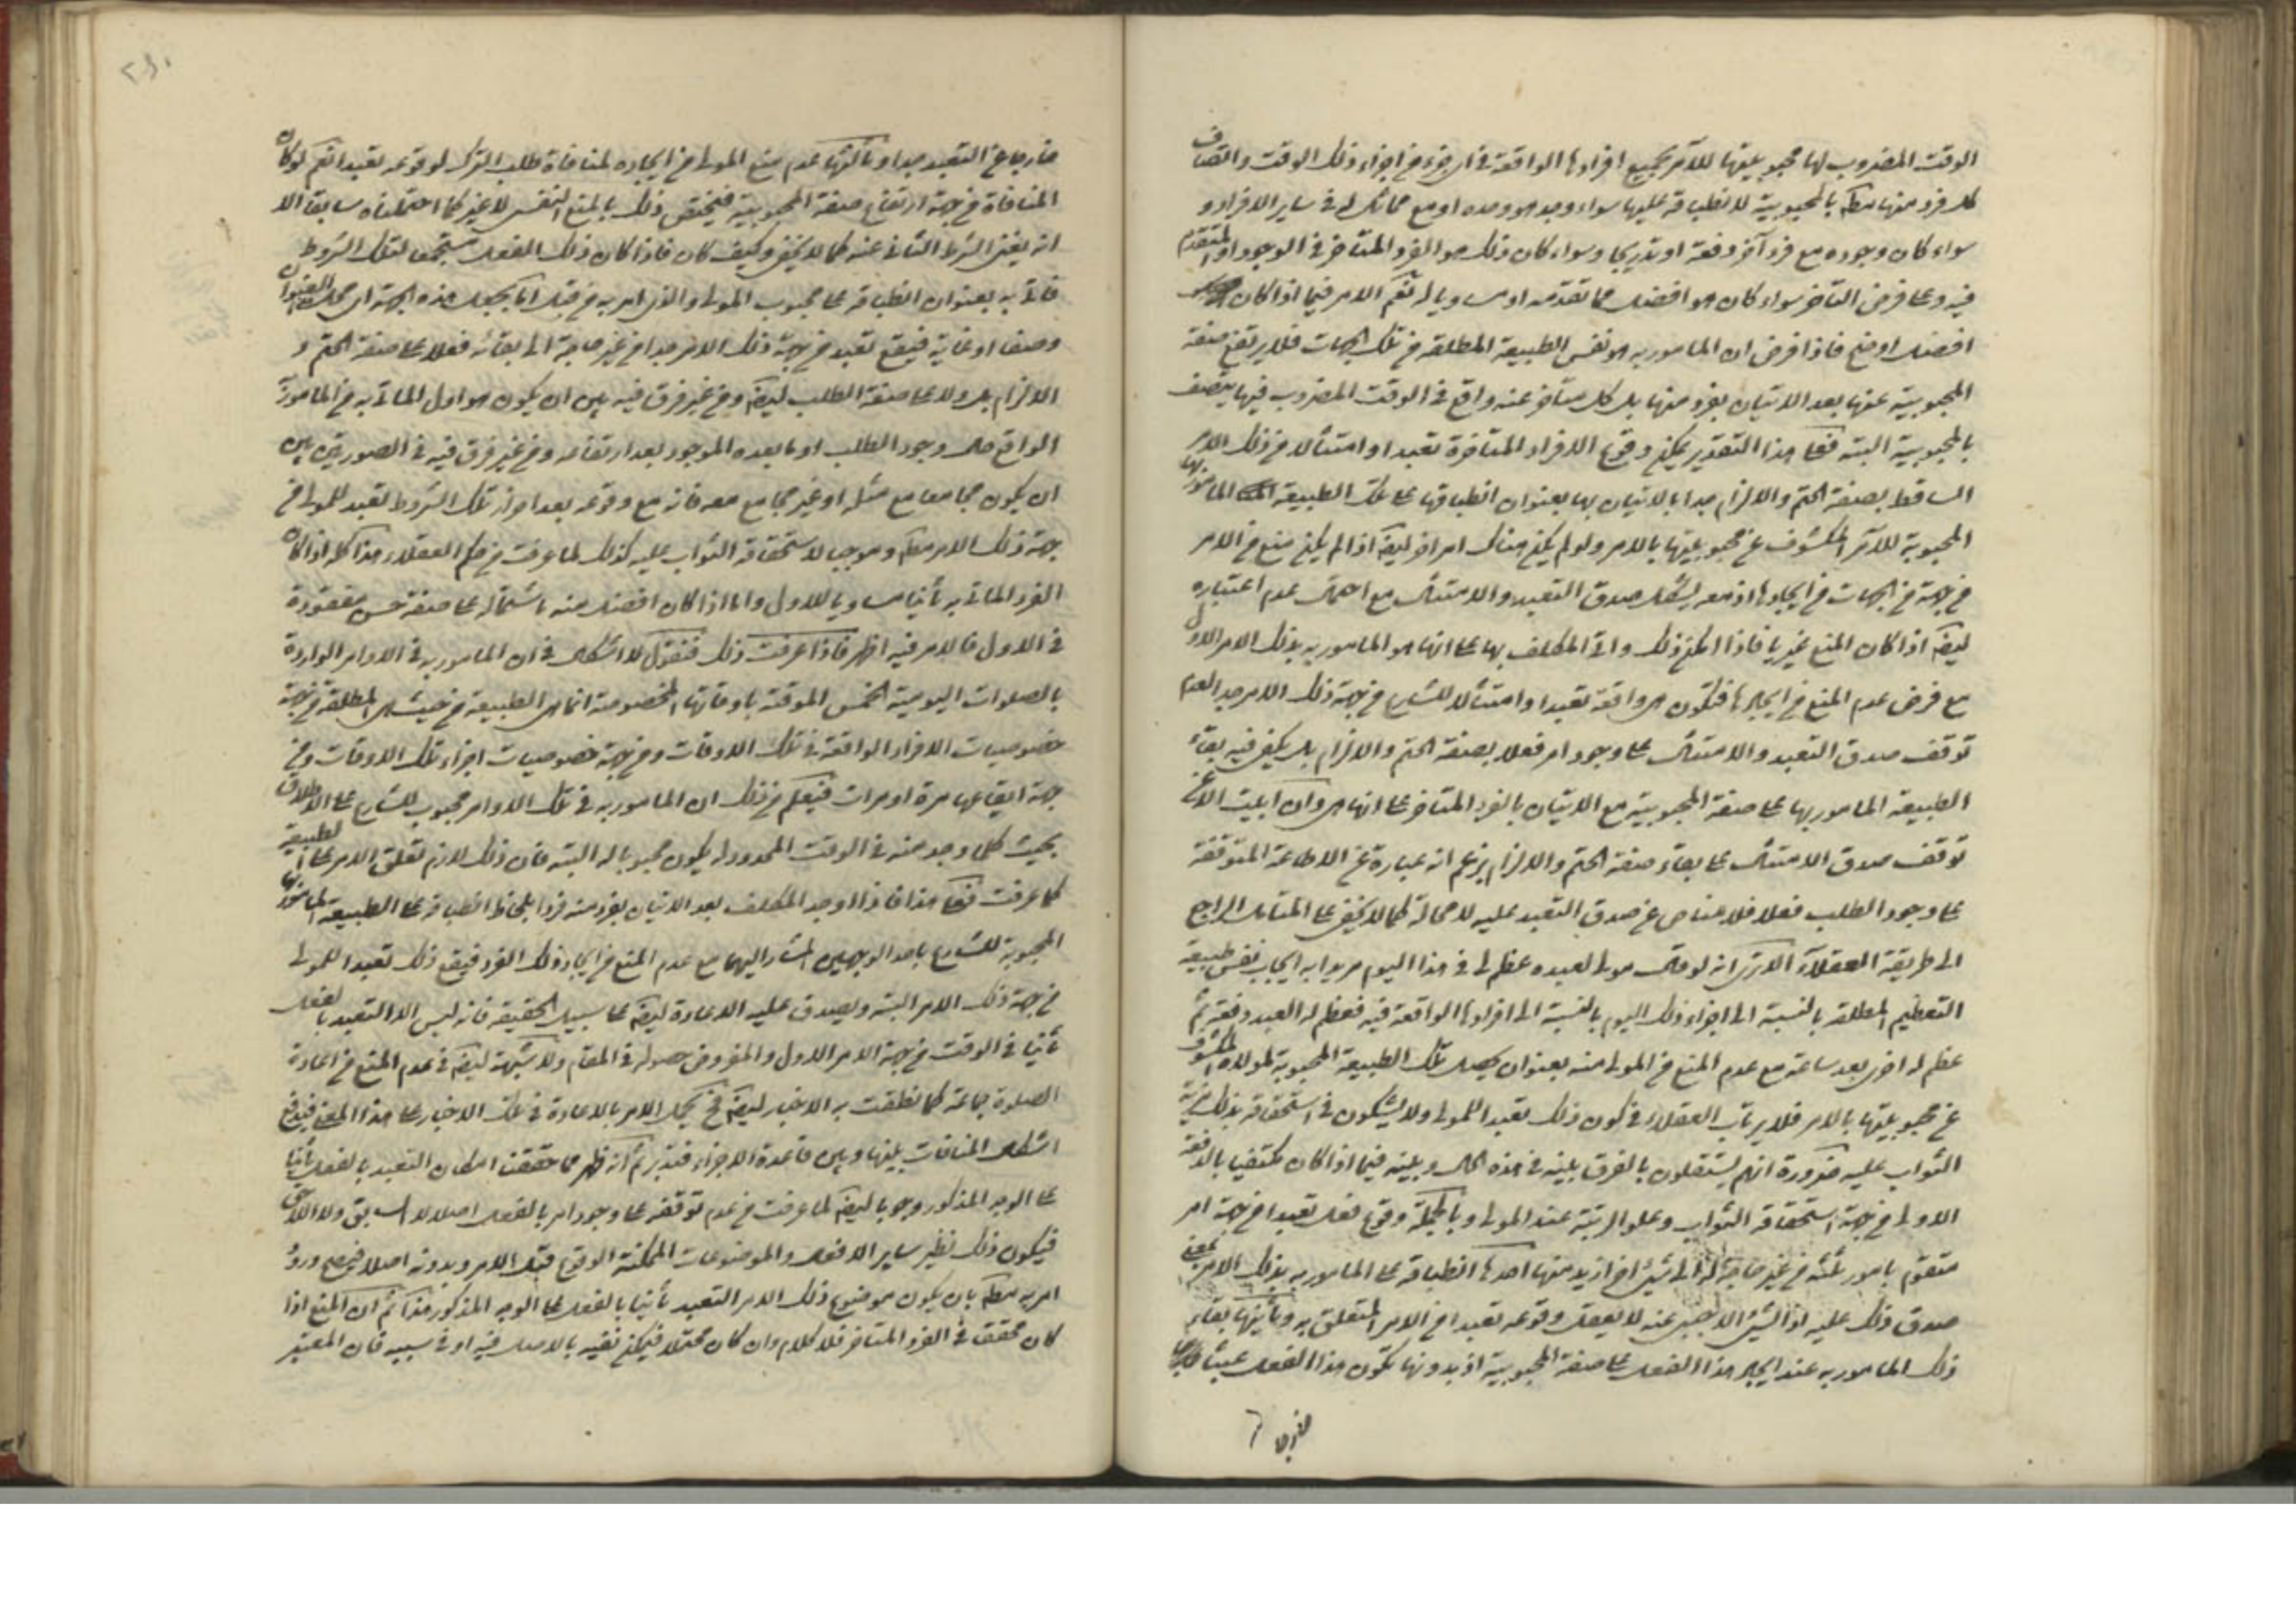 الوقت المضروب لها محبوبيتها للآمر بجميع افرادها الواقعة في اى جزء من اجزاء ذلك الوقت واتصاف
كل فرد منها مطلقا بالمحبوبية لانطباقه عليها سواء وجد هو وحده او مع مماثل له في ساير الافراد و
سواء كان وجوده مع فرد آخر دفعة او تدريجا وسواء كان ذلك هو الفرد المتأخر في الوجود او المتقدم
فيه وعلى فرض التأخر سواء كان هو افضل مما تقدمه او مساويا له نعم الامر فيما اذا كان
افضل اوضح فاذا فرض ان المامور به هو نفس الطبيعة المطلقة من تلك الجهات فلا يرتفع صفة
المحبوبية عنها بعد الاتيان بفرد منها بل كل متأخر عنه واقع في الوقت المضروب فيها يتصف
بالمحبوبية البتة فعلى هذا التقدير يمكن وقوع الافراد المتأخرة تعبدا وامتثالا من ذلك الامر
الساقط بصفة الحتم والالزام جدا بالاتيان بها بعنوان انطباقها على تلك الطبيعة المامور بها
المحبوبة للآمر المكشوف عن محبوبيتها بالامر ولو لم يكن هناك امر آخر ايضا اذا لم يكن منع من الامر
من جهة من الجهات من ايجادها اذ معه يشكل صدق التعبد والامتثال مع احتمال عدم اعتباره
ايضا اذا كان المنع غيريا فاذا امكن ذلك واتى المكلف بها على انها هو المامور به بذلك الامر الاول
مع فرض عدم المنع من ايجادها فتكون هى واقعة تعبدا وامتثالا للشارع من جهة ذلك الامر جدا لعدم
توقف صدق التعبد والامتثال على وجود امر فعلا بصفة الحتم والالزام بل يكفى فيه بقاء
الطبيعة المامور بها على صفة المحبوبية مع الاتيان بالفرد المتأخر على انها هى وان ابيت الا عن
توقف صدق الامتثال على بقاء صفة الحتم والالزام بزعم انه عبارة عن الاطاعة المتوقفة
على وجود الطلب فعلا فلا مناص عن صدق التعبد عليه لا محالة كما لا يخفى على المتأمل الراجع
الى طريقة العقلاء الا ترى انه لو قال مولى لعبده عظم لى في هذا اليوم مريدا به ايجاب نفس طبيعة
التعظيم المطلقة بالنسبة الى اجزاء ذلك اليوم بالنسبة الى افرادها الواقعة فيه فعظم له العبد دفعة ثم
عظم له اخرى بعد ساعة مع عدم المنع من المولى منه بعنوان تحصيل تلك الطبيعة المحبوبة لمولاه المكشوف
عن محبوبيتها بالامر فلا يرتاب العقلاء في كون ذلك تعبدا للمولى ولا يشكون في استحقاقه بذلك مزية
الثواب عليه ضرورة انهم يستقلون بالفرق بينه في هذه الحال وبينه فيما اذا كان مكتفيا بالدفعة
الاولى من جهة استحقاقه الثواب وعلو الرتبة عند المولى وبالجملة وقوع فعل تعبدا من جهة امر
متقوم بامور ثلثة من غير حاجة له الى شئ آخر ازيد منها احدها انطباقه على المامور به بذلك الامر بمعنى
صدق ذلك عليه اذ الشئ الاجنبى عنه لا يعقل وقوعه تعبدا من الامر المتعلق به وثانيها بقاء
ذلك المامور به عند ايجاد هذا الفعل على صفة المحبوبية اذ بدونها تكون هذا الفعل عبثا خارجا
خارجا
خارجا عن التعبد جدا وثالثها عدم منع المولى من ايجاده لمنافاة طلب الترك لوقوعه تعبدا نعم لو كان
المنافاة من جهة ارتفاع صفة المحبوبية فيختص ذلك بالمنع النفسى لا غير كما احتملناه سابقا الا
انه يغنى الشرط الثانى عنه كما لا يخفى وكيف كان فاذا كان ذلك الفعل مستجمعا لتلك الشروط
فاتى به بعنوان انطباقه على محبوب المولى والذى امر به من قبل اما بجعل هذه الجهة اى هذا العنوان
وصفا او غاية فيقع تعبدا من جهة ذلك الامر جدا من غير حاجة الى بقائه فعلا على صفة الحتم و
الالزام بل ولا على صفة الطلب ايضا ومن غير فرق فيه بين ان يكون هو اول الماتى به من المامور به
الواقع حال وجود الطلب او ما بعده الموجود بعد ارتفاعه ومن غير فرق فيه في الصورتين بين
ان يكون مجامعا مع مثله او غير مجامع معه فانه مع وقوعه بعد احراز تلك الشروط تعبد للمولى من
جهة ذلك الامر مطلقا وموجب لاستحقاقه الثواب عليه كذلك لما عرفت من حكم العقلاء هذا كله اذا كان
الفرد الماتى به ثانيا مساويا للاول واما اذا كان افضل منه باشتماله على صفة حسن مفقودة
في الاول فالامر فيه اظهر فاذا عرفت ذلك فنقول لا اشكال في ان المامور به في الاوامر الواردة
بالصلوات اليومية الخمس الموقتة باوقاتها المخصوصة انما هى الطبيعة من حيث هى المطلقة من جهة
خصوصيات الافراد الواقعة في تلك الاوقات ومن جهة خصوصيات اجزاء تلك الاوقات ومن
جهة ايقاعها مرة او مرات فيعلم من ذلك ان المامور به في تلك الاوامر محبوب للشارع على الاطلاق
بحيث كلما وجد منه في الوقت المحدود له يكون محبوبا له البتة فان ذلك لازم تعلق الامر على الطبيعة
كما عرفت فعلى هذا فاذا اوجد المكلف بعد الاتيان بفرد منه فردا بلحاظ انطباقه على الطبيعة المامور بها
المحبوبة للشارع باحد الوجهين المشار اليهما مع عدم المنع من ايجاد ذلك الفرد فيقع ذلك تعبدا للمولى
من جهة ذلك الامر البتة ويصدق عليه الاعادة ايضا على سبيل الحقيقة فانه ليس الا التعبد بالفعل
ثانيا في الوقت من جهة الامر الاول والمفروض حصوله في المقام ولا شبهة ايضا في عدم المنع من اعادة
الصلوة جماعة كما نطقت به الاخبار ايضا فح يحمل الامر بالاعادة في تلك الاخبار على هذا المعنى فيندفع
اشكال المنافات بينها وبين قاعدة الاجزاء فتدبر ثم انه ظهر مما حققنا امكان التعبد بالفعل ثانيا
على الوجه المذكور وجوبا ايضا لما عرفت من عدم توقفه على وجود امر بالفعل اصلا لا السابق ولا اللاحق
فيكون ذلك نظير ساير الافعال والموضوعات الممكنة الوقوع قبل الامر وبدونه اصلا فيصح ورود
امر به مطلقا بان يكون موضوع ذلك الامر التعبد ثانيا بالفعل على الوجه المذكور هذا ثم ان المنع اذا
كان محققا في الفرد المتأخر فلا كلام وان كان محتملا فيمكن نفيه بالاصل فيه او في سببه فان المعتبر